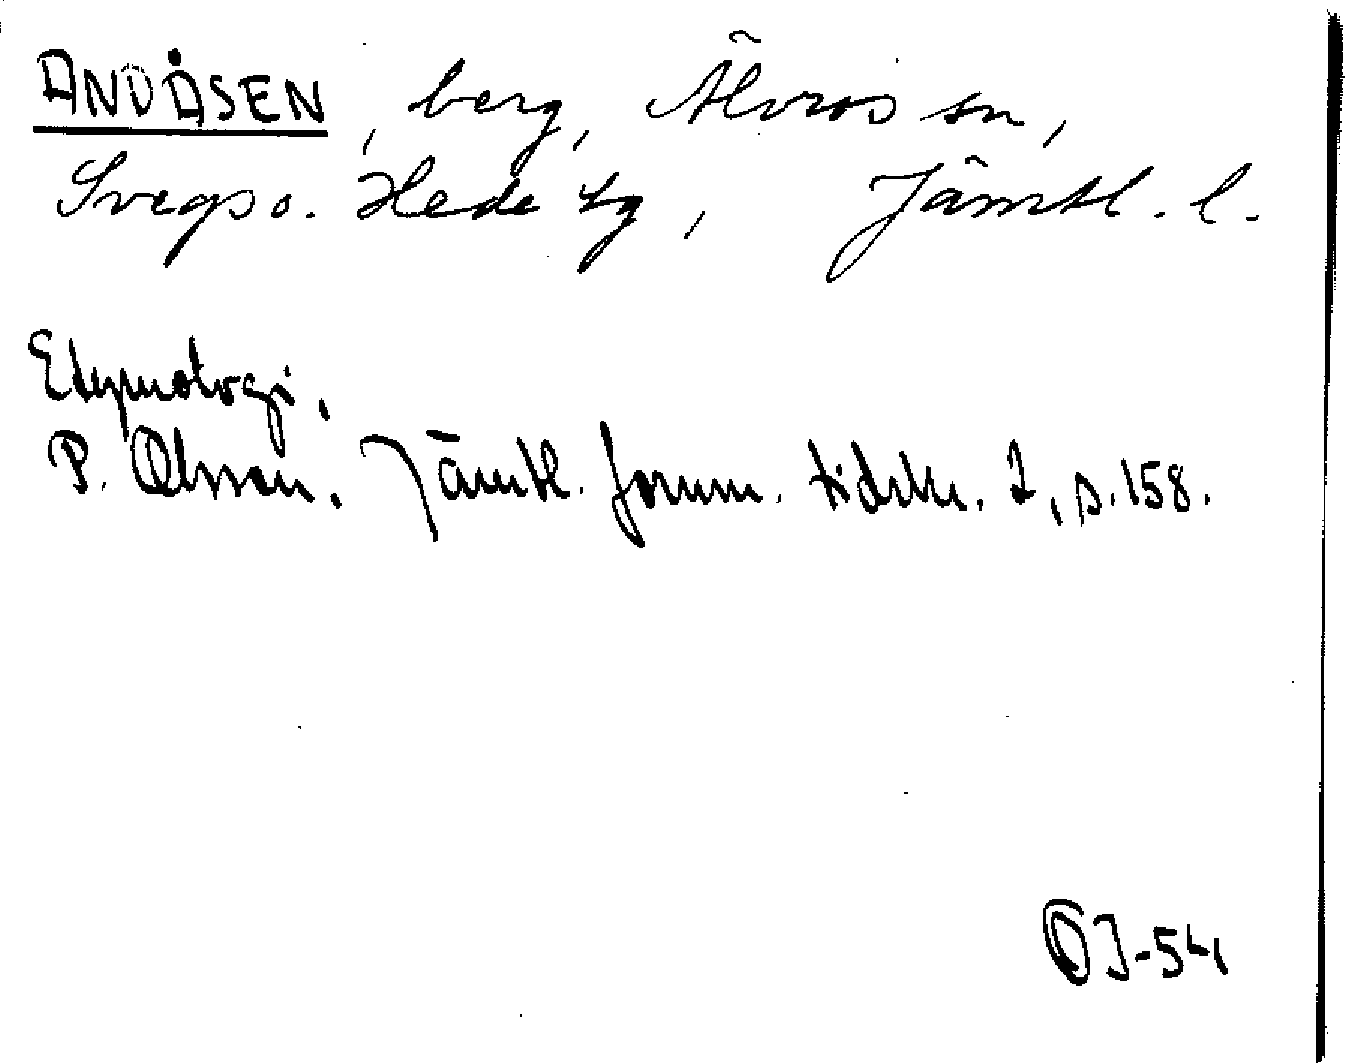 ANDÅSEN, berg, Älvros sn,
Svegs o. Hede tg, Jämtl. l.
Etymologi.
P. Olsson. Jämtl. fornm. tidskr. 2, s. 158.
OJ-54